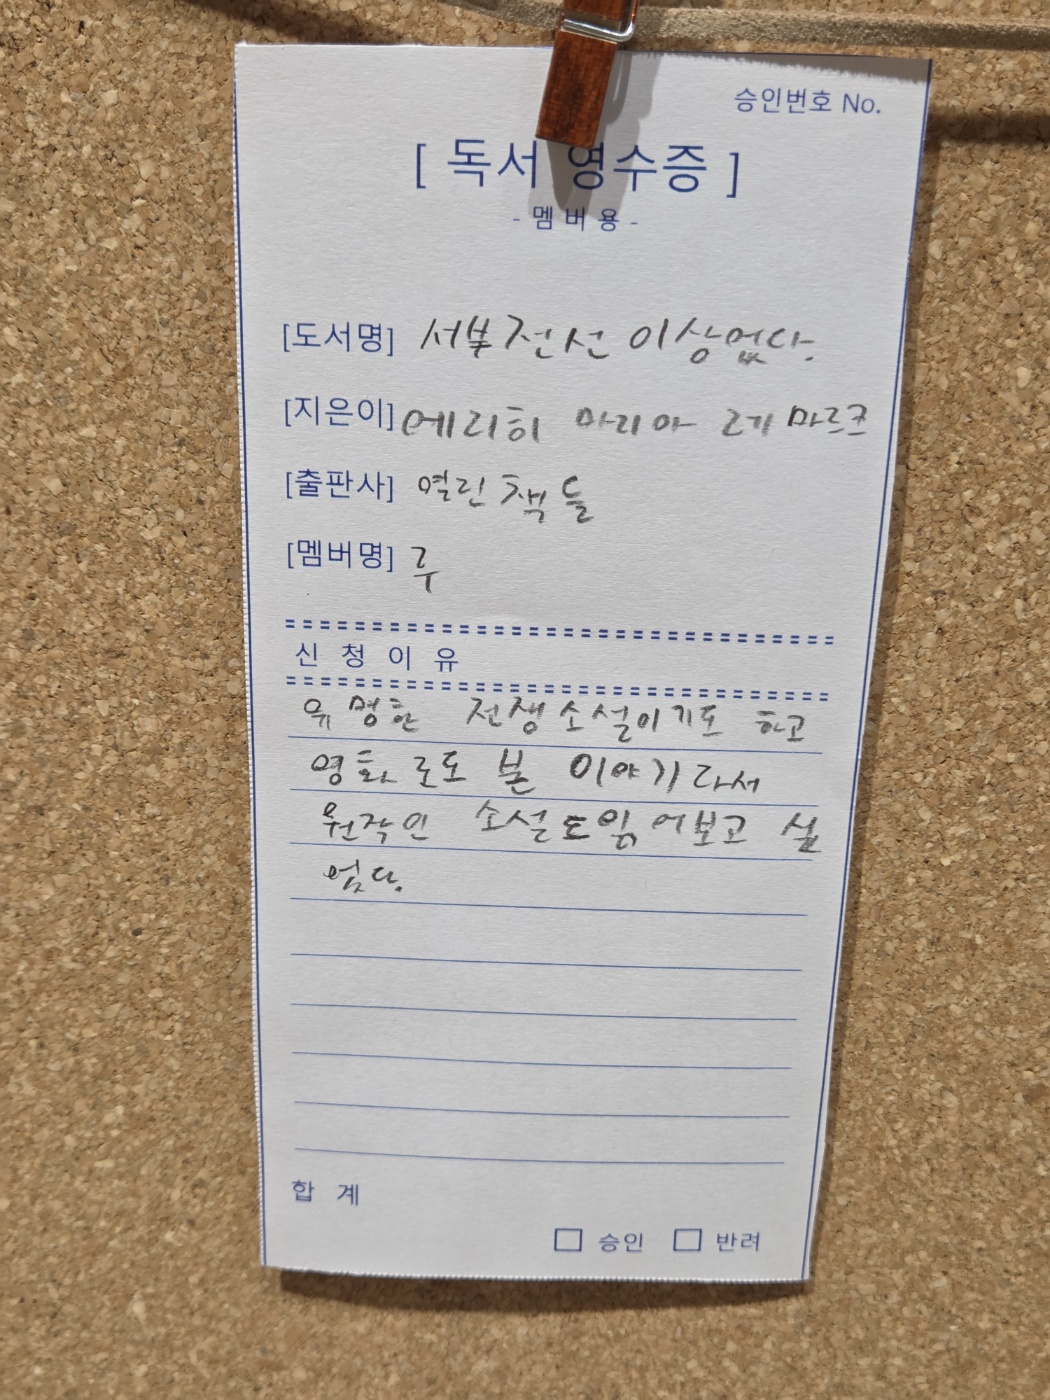 승인번호 No.
[ 독서 영수증 ]
- 멤버용 -
[도서명] 서부전선 이상없다.
[지은이] 에리히 마리아 레마르크
[출판사] 열린책들
[멤버명] 루
신청이유
유명한 전쟁소설이기도 하고
영화로도 본 이야기라서
원작인 소설도 읽어보고 싶
었다.
합 계
☐ 승인 ☐ 반려